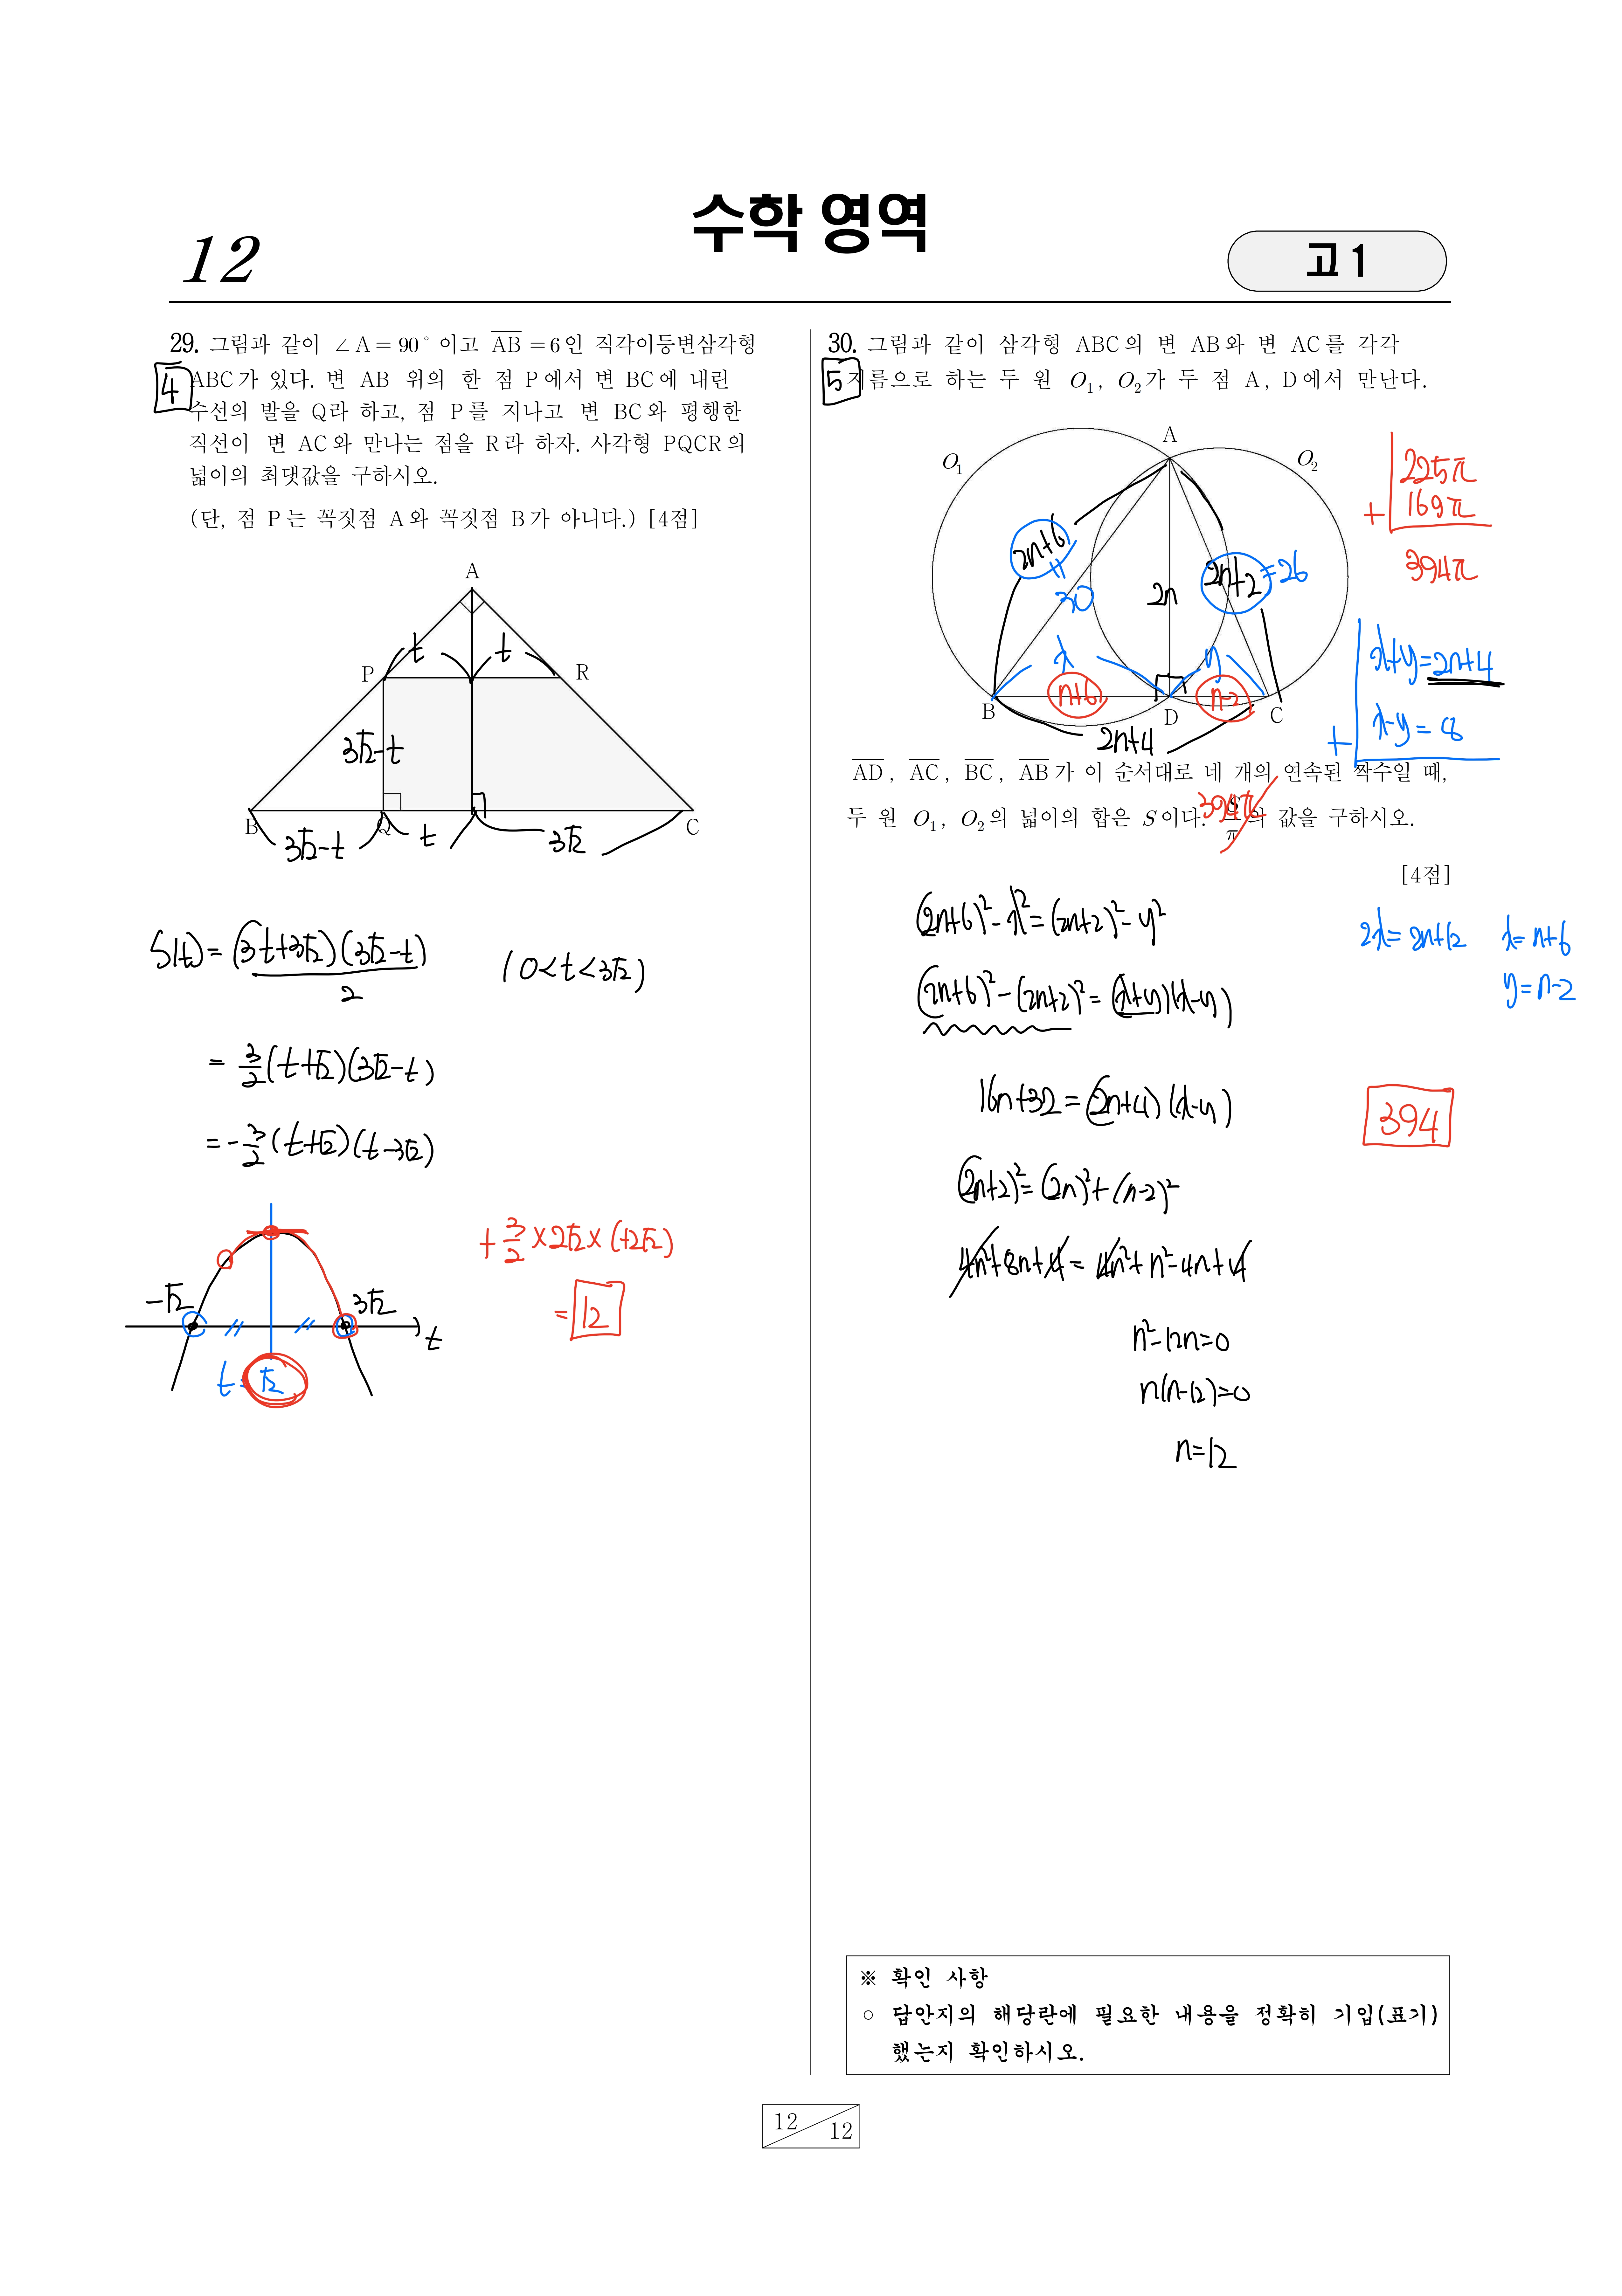 수학 영역
12
고 1
29. 그림과 같이 ∠A = 90° 이고 AB = 6인 직각이등변삼각형
4
ABC가 있다. 변 AB 위의 한 점 P에서 변 BC에 내린
수선의 발을 Q라 하고, 점 P를 지나고 변 BC와 평행한
직선이 변 AC와 만나는 점을 R라 하자. 사각형 PQCR의
넓이의 최댓값을 구하시오.
(단, 점 P는 꼭짓점 A와 꼭짓점 B가 아니다.) [4점]
A
t t
P R
3√2-t
B Q C
3√2-t t 3√2
S(t) = (3t+3√2)(3√2-t)/2 (0<t<3√2)
= 3/2(t+√2)(3√2-t)
= -3/2(t+√2)(t-3√2)
+3/2×2√2×(+2√2)
= 12
-√2 3√2
t
t=√2
30. 그림과 같이 삼각형 ABC의 변 AB와 변 AC를 각각
5
지름으로 하는 두 원 O₁, O₂가 두 점 A, D에서 만난다.
A
O₁ O₂
2n+6
=
30
2n
2n+2=26
x y
n+6 n-2
B D C
2n+4
225π
+ 169π
394π
x+y=2n+4
+ x-y=8
AD, AC, BC, AB가 이 순서대로 네 개의 연속된 짝수일 때,
두 원 O₁, O₂의 넓이의 합은 S이다. S/π의 값을 구하시오.
394π
[4점]
(2n+6)²-x²=(2n+2)²-y²
2x=2n+12 x=n+6
y=n-2
(2n+6)²-(2n+2)²=(x+y)(x-y)
16n+32=(2n+4)(x-y)
394
(2n+2)²=(2n)²+(n-2)²
4n²+8n+4=4n²+n²-4n+4
n²-12n=0
n(n-12)=0
n=12
※ 확인 사항
○ 답안지의 해당란에 필요한 내용을 정확히 기입(표기)
했는지 확인하시오.
12 12